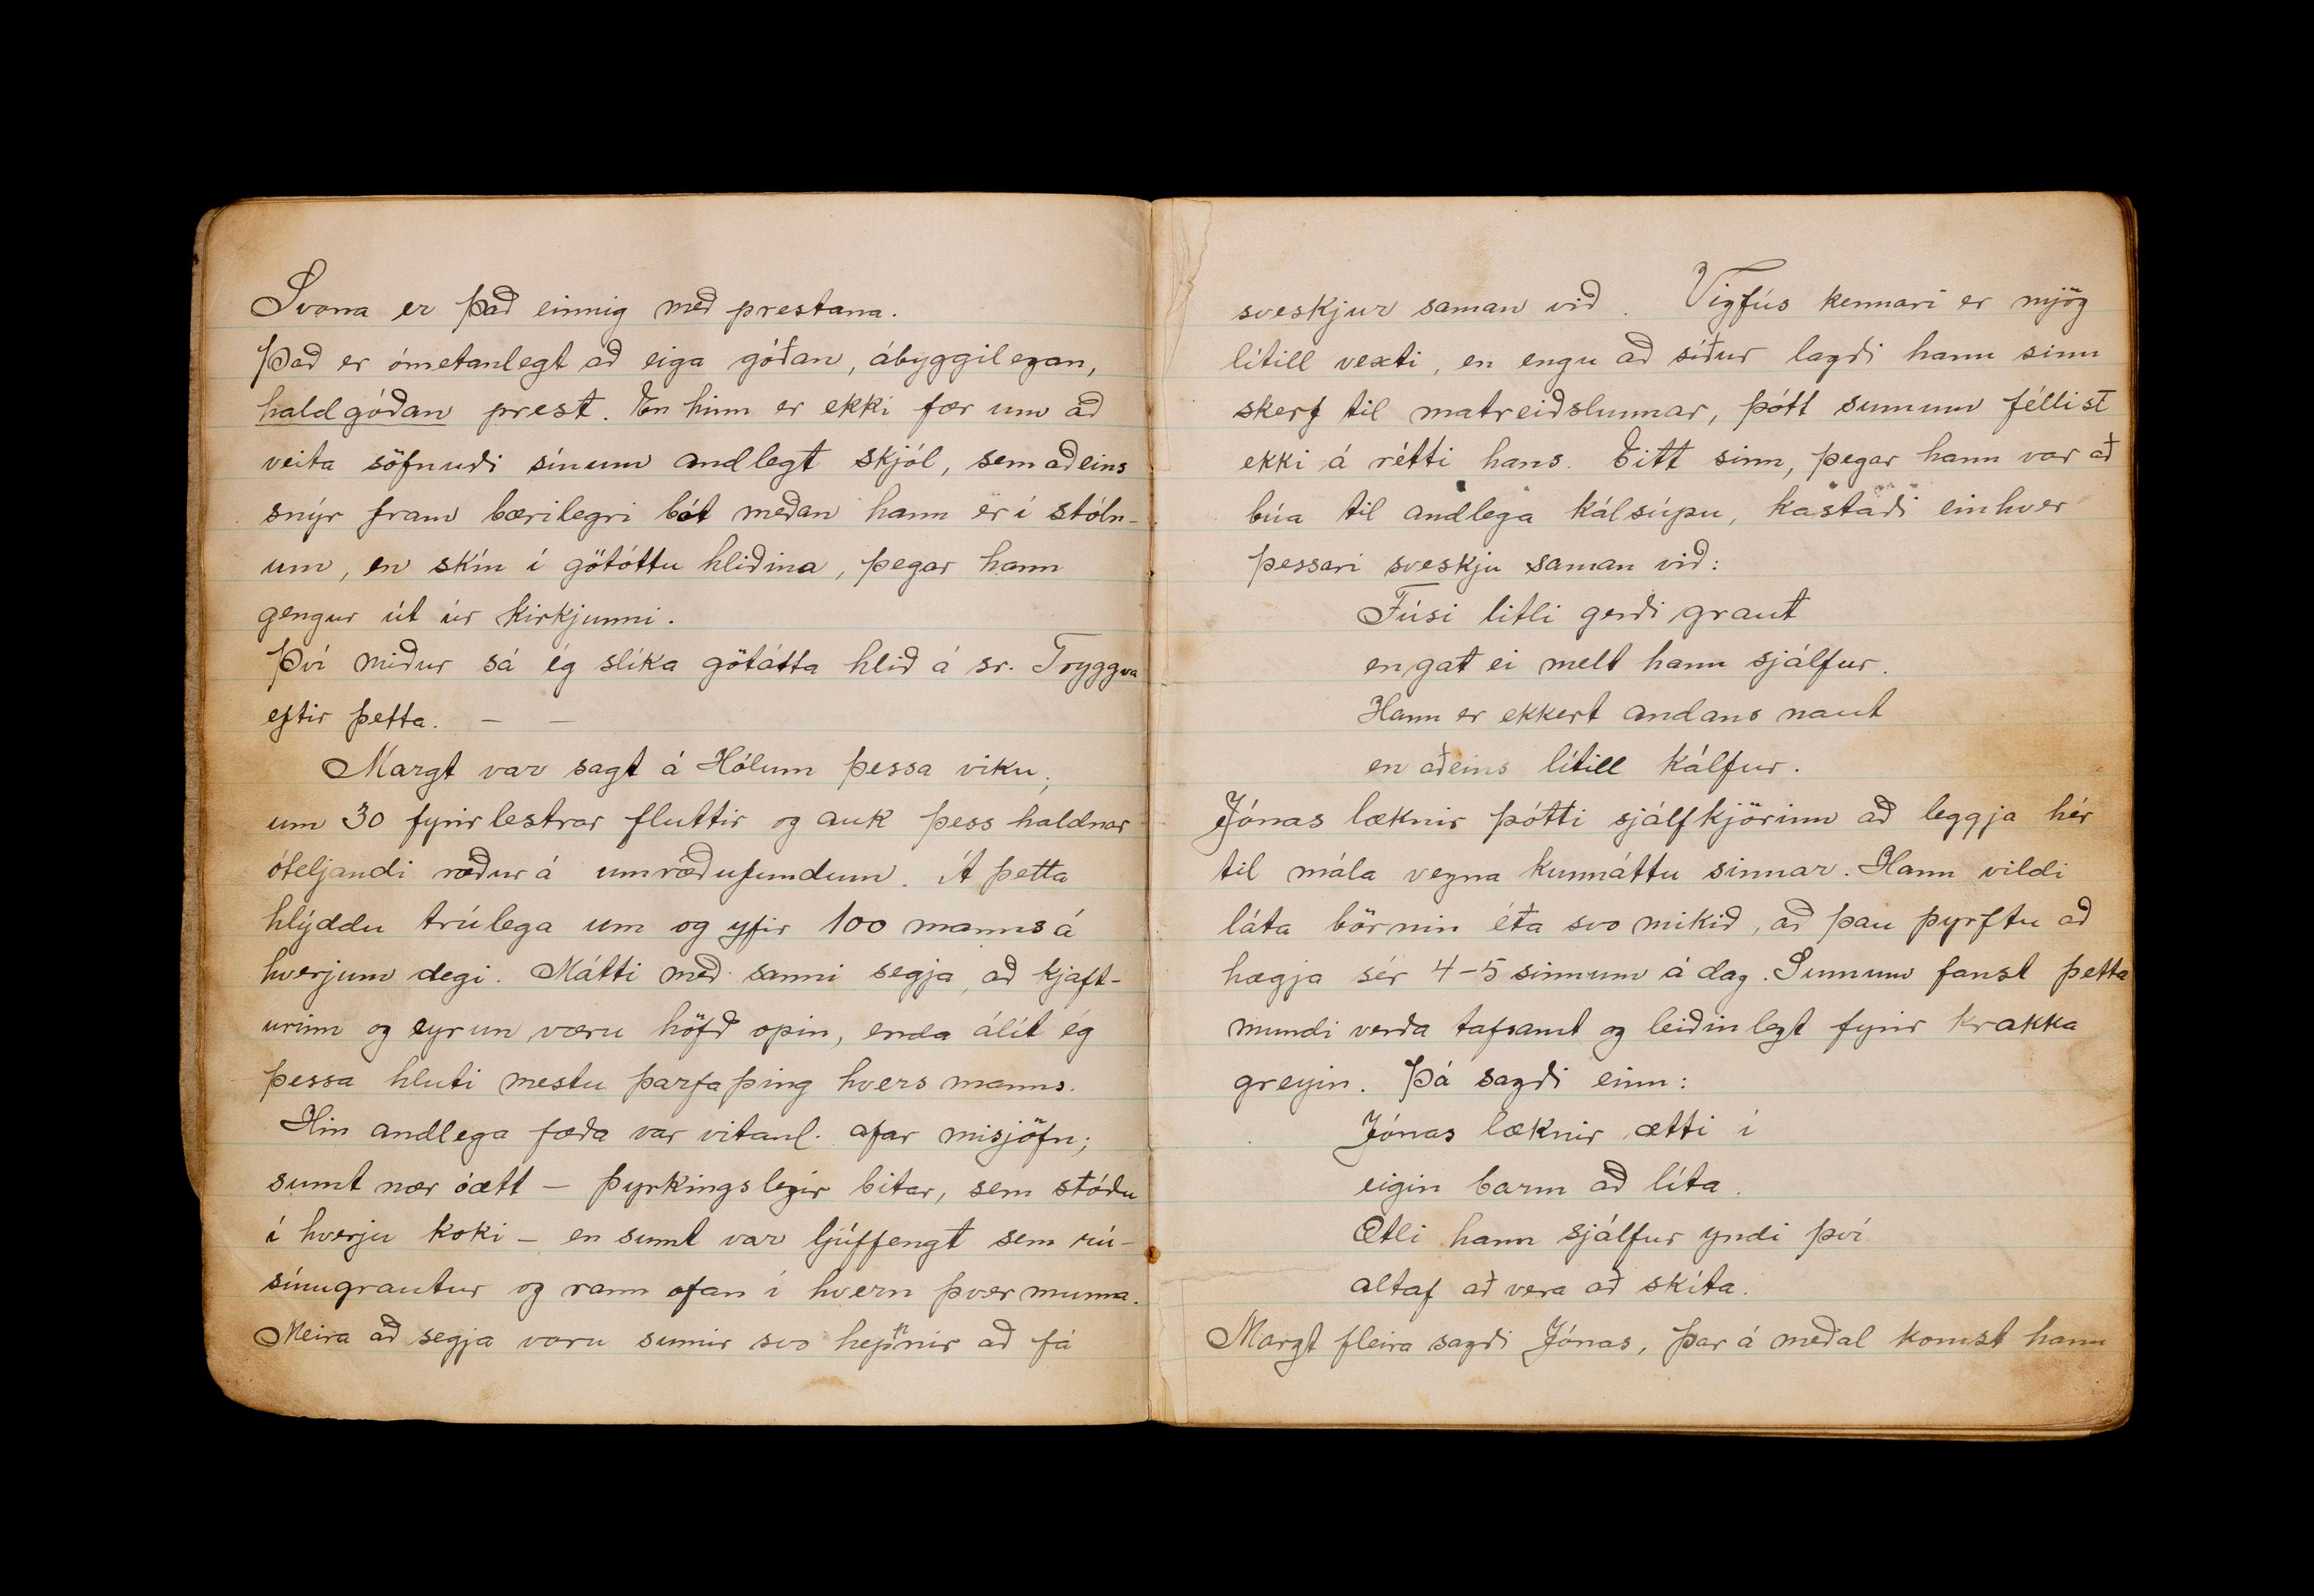 Svona er það einnig með prestana.
Það er ómetanlegt að eiga góðan, ábyggilegan,
haldgóðan prest. En hinn er ekki fær um að
veita söfnuði sínum andlegt skjól, sem aðeins
snýr fram bærilegri bót meðan hann er í stóln-
um, en skín í götóttu hliðina, þegar hann
gengur út úr kirkjunni.
Því miður sá ég slíka götátta hlið á sr. Tryggva
eftir þetta. — —
Margt var sagt á Hólum þessa viku,
um 30 fyrirlestrar fluttir og auk þess haldnar
óteljandi ræður á umræðufundum. Á þetta
hlýddu trúlega um og yfir 100 manns á
hverjum degi. Mátti með sanni segja, að kjaft-
urinn og eyrun væru höfð opin, enda álít ég
þessa hluti mestu þarfaþing hvers manns.
Hin andlega fæða var vitanl. afar misjöfn;
sumt nær óætt — þyrkingslegir bitar, sem stóðu
í hverju koki — en sumt var ljúffengt sem rú-
sínugrautur og rann ofan í hvern þvermunna.
Meira að segja voru sumir svo heppnir að fá
sveskjur saman við. Vigfús kennari er mjög
lítill vexti, en engu að síður lagði hann sinn
skerf til matreiðslunnar, þótt sumum féllist
ekki á rétti hans. Eitt sinn, þegar hann var að
búa til andlega kálsúpu, kastaði einhver
þessari sveskju saman við:
Fúsi litli gerði graut
en gat ei melt hann sjálfur.
Hann er ekkert andans naut
en aðeins lítill kálfur.
Jónas læknir þótti sjálfkjörinn að leggja hér
til mála vegna kunnáttu sinnar. Hann vildi
láta börnin éta svo mikið, að þau þyrftu að
hægja sér 4-5 sinnum á dag. Sumum fanst þetta
mundi verða tafsamt og leiðinlegt fyrir krakka
greyin. Þá sagði einn:
Jónas læknir ætti í
eigin barm að líta.
Ætli hann sjálfur yndi því
altaf að vera að skíta.
Margt fleira sagði Jónas, þar á meðal komst hann